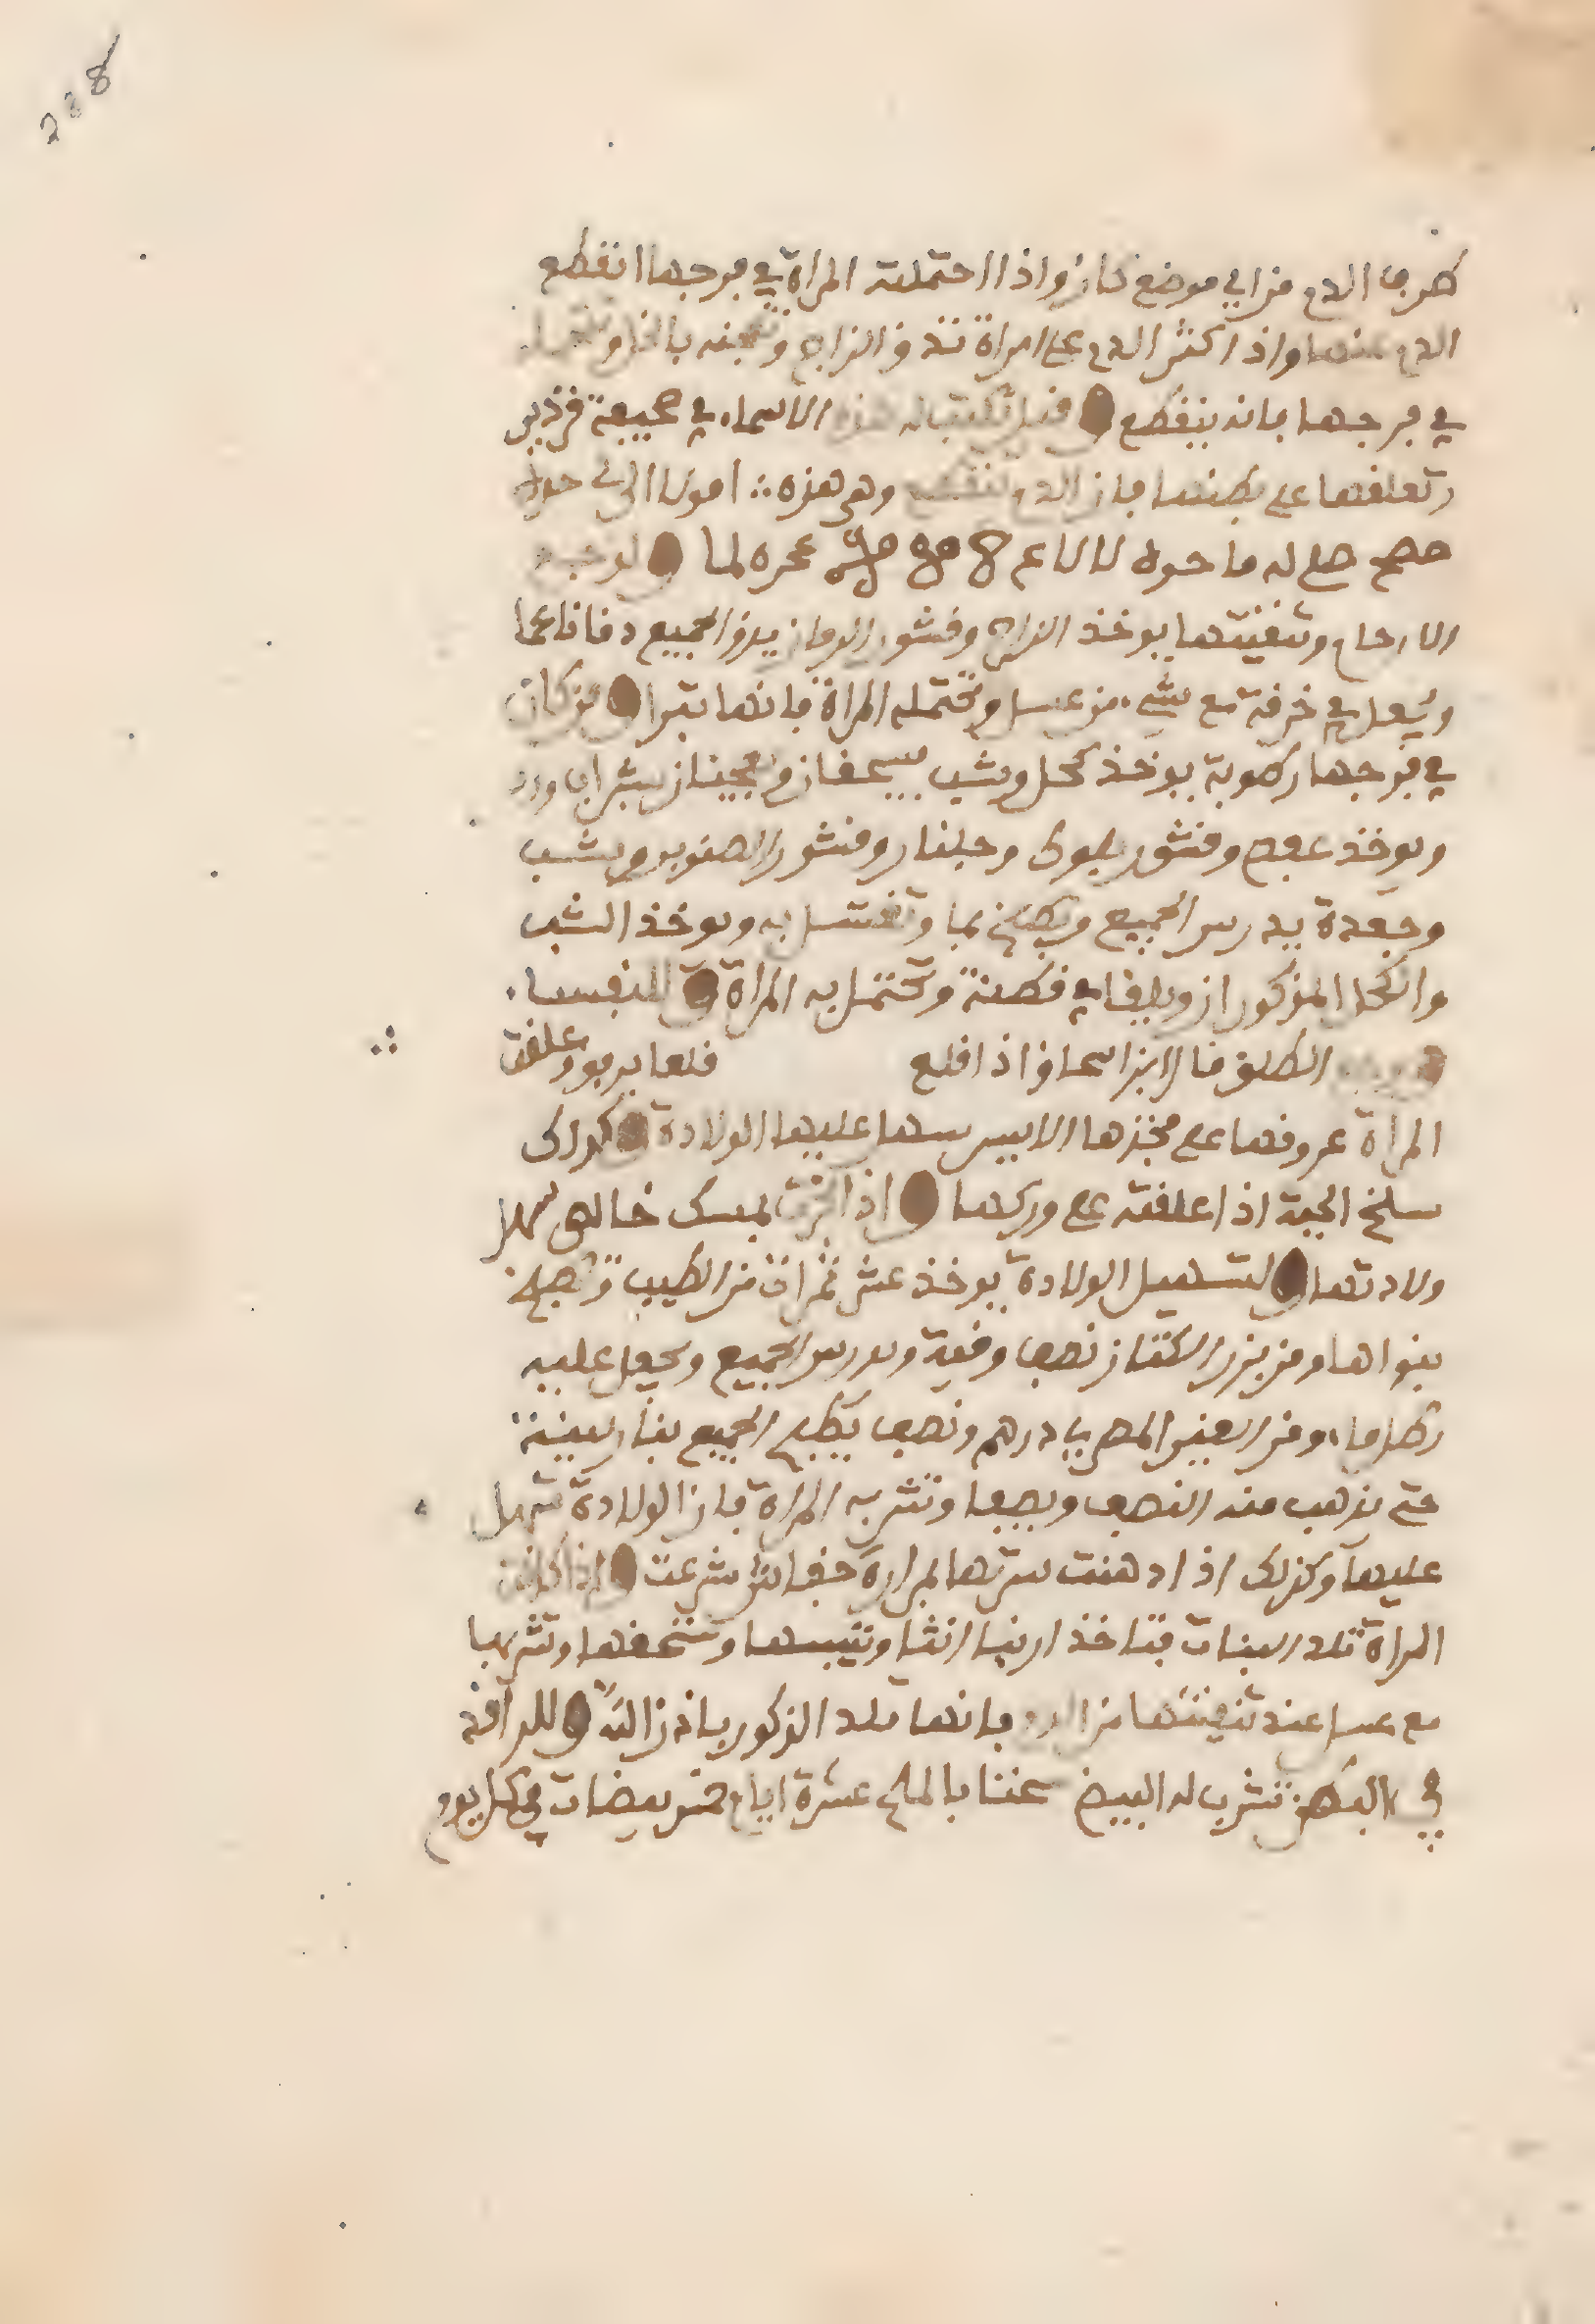 238
طرف الدم من اي موضع كان واذا احتملته المراة في فرجها انقطع
الدم عنها واذا كثر الدم على امراة تدق الزاج وتعجنه بالخل وتحتمله
في فرجها فانه ينقطع وقيل تكتب له هذه الاسماء في صحيفة قزدير
وتعلقها على بطنها فان الدم ينقطع وهى هذه
ما حوله لا لا عم 8
الارحام وتنقيتها يوخذ الزاج وقشور الرمان يدق الجميع دقا ناعما
ويجعل في خرقة مع شيء من عسل وتحتمله المراة فانها تبرا من كان
في فرجها رطوبة يوخذ كحل وشب يسحقان ويعجنان بشراب ورد
ويوخذ عفص وقشور بلوط وجلنار وقشور الصنوبر وشب
وجعدة يدرس الجميع ويطبخ بما وتغتسل به ويوخذ الشب
والكحل المذكوران ويلقا في قطنة وتحتمل به المراة للنفساء
الطلق قال ابن اسحاق اذا قلع قلعا بربو وعلقت
المراة عروقها على فخذها الايسر سهل عليها الولادة وكذلك
سلخ الحية اذا علقته على وركها واذا بخرت بمسك خالص سهل
ولادتها ولتسهيل الولادة يوخذ عشر تمرات من الطيب وتطبخ
بنواها ومن بزر الكتان نصف وقية ويدرس الجميع ويجعل عليه
رطل ماء ومن العنبر المصري درهم ونصف يطبخ الجميع بنار لينة
حتى يذهب منه النصف ويصفا وتشربه المراة فان الولادة تسهل
عليها وكذلك اذا دهنت سرتها بمرارة شرعت واذا كانت
المراة تلد البنات فتاخذ ارنبا انثا وتيبسها وتسحقها وتشربها
مع عسل عند تنقيتها من الدم فانها تلد الذكور باذن الله وللراقد
في البطن تشرب له البيض سخنا بالملح عشرة ايام خمس بيضات في كل يوم